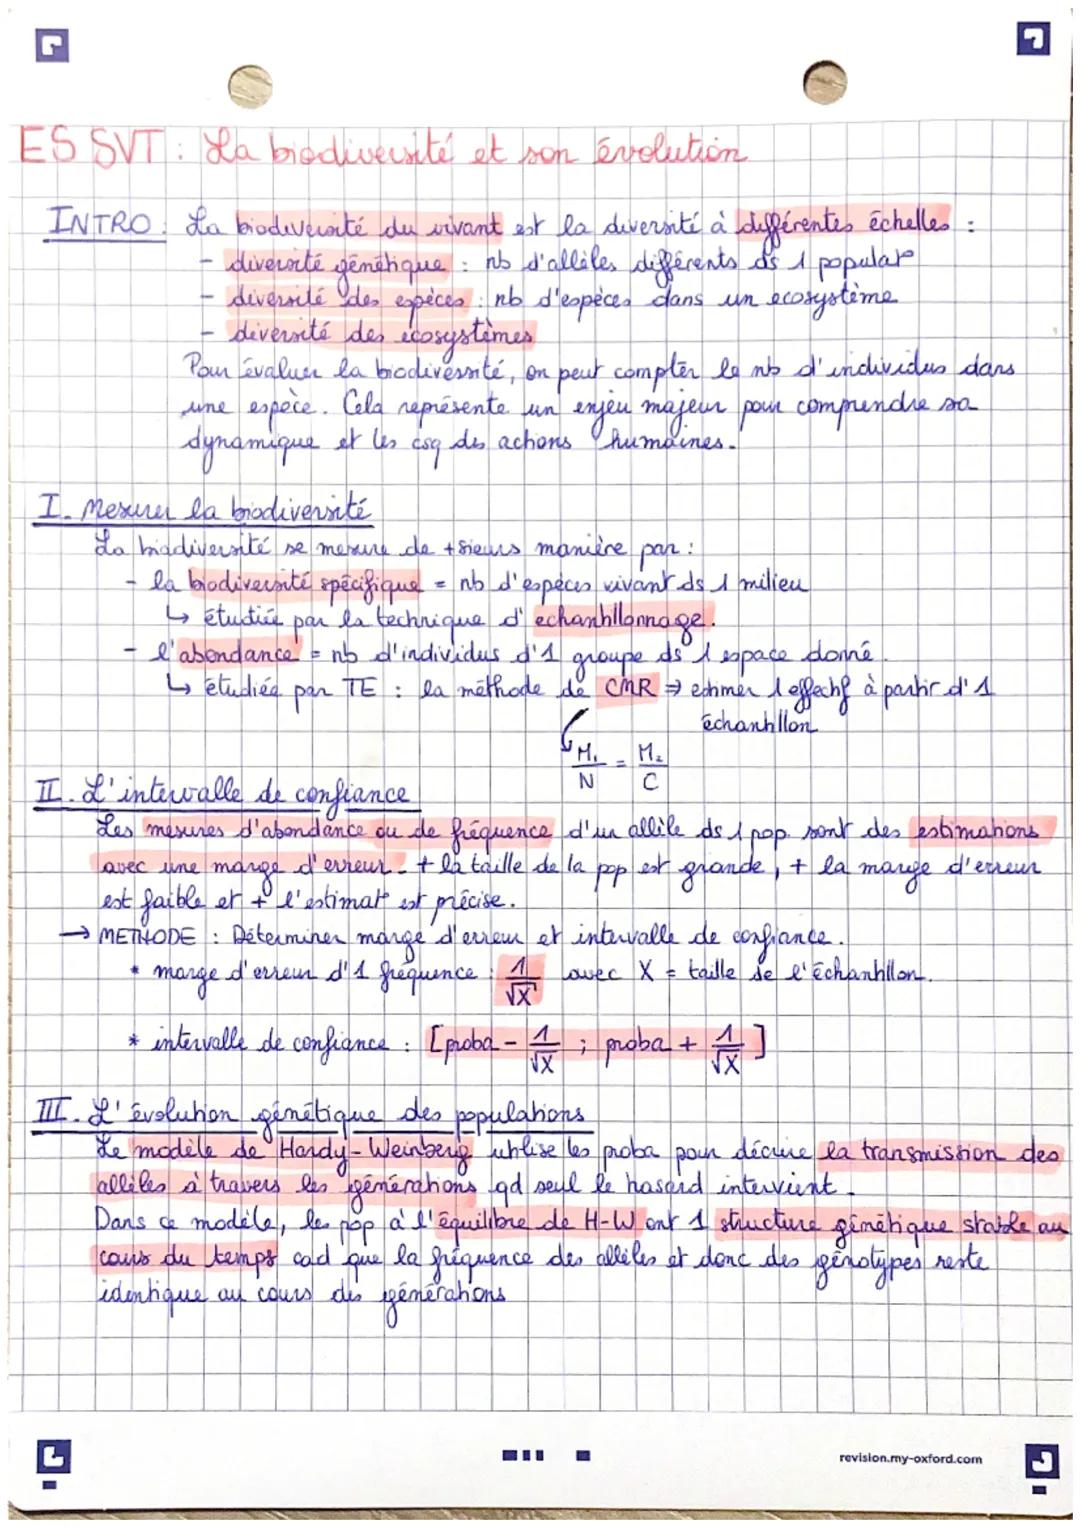 ES SVT : La biodiversité et son évolution
INTRO : La biodiversité du vivant est la diversité à différentes échelles :
- diversité génétique : nb d'allèles différents ds 1 populat°
- diversité des espèces : nb d'espèces dans un ecosystème
- diversité des écosystèmes
Pour évaluer la biodiversité, on peut compter le nb d'individus dans
une espèce. Cela représente un enjeu majeur pour comprendre sa
dynamique et les csq des actions humaines.
I. Mesurer la biodiversité
La biodiversité se mesure de +sieurs manière par :
- la biodiversité spécifique = nb d'espèces vivant ds 1 milieu
↳ étudiée par la technique d'echantillonnage.
- l'abondance = nb d'individus d'1 groupe ds 1 espace donné.
↳ étudiée par TE : la méthode de CMR ⇒ estimer l'effectif à partir d'1
échantillon
M₁/N = M₂/C
II. L'intervalle de confiance
Les mesures d'abondance ou de fréquence d'un allèle ds 1 pop. sont des estimations
avec une marge d'erreur. + la taille de la pop est grande, + la marge d'erreur
est faible et + l'estimat° est précise.
→ METHODE : Déterminer marge d'erreur et intervalle de confiance.
* marge d'erreur d'1 fréquence : 1/√X avec X = taille de l'échantillon.
* intervalle de confiance : [proba - 1/√X ; proba + 1/√X]
III. L'évolution génétique des populations
Le modèle de Hardy-Weinberg utilise les proba pour décrire la transmission des
allèles à travers les générations qd seul le hasard intervient.
Dans ce modèle, les pop à l'équilibre de H-W ont 1 structure génétique stable au
cours du temps cad que la fréquence des allèles et donc des génotypes reste
identique au cours des générations
revision.my-oxford.com